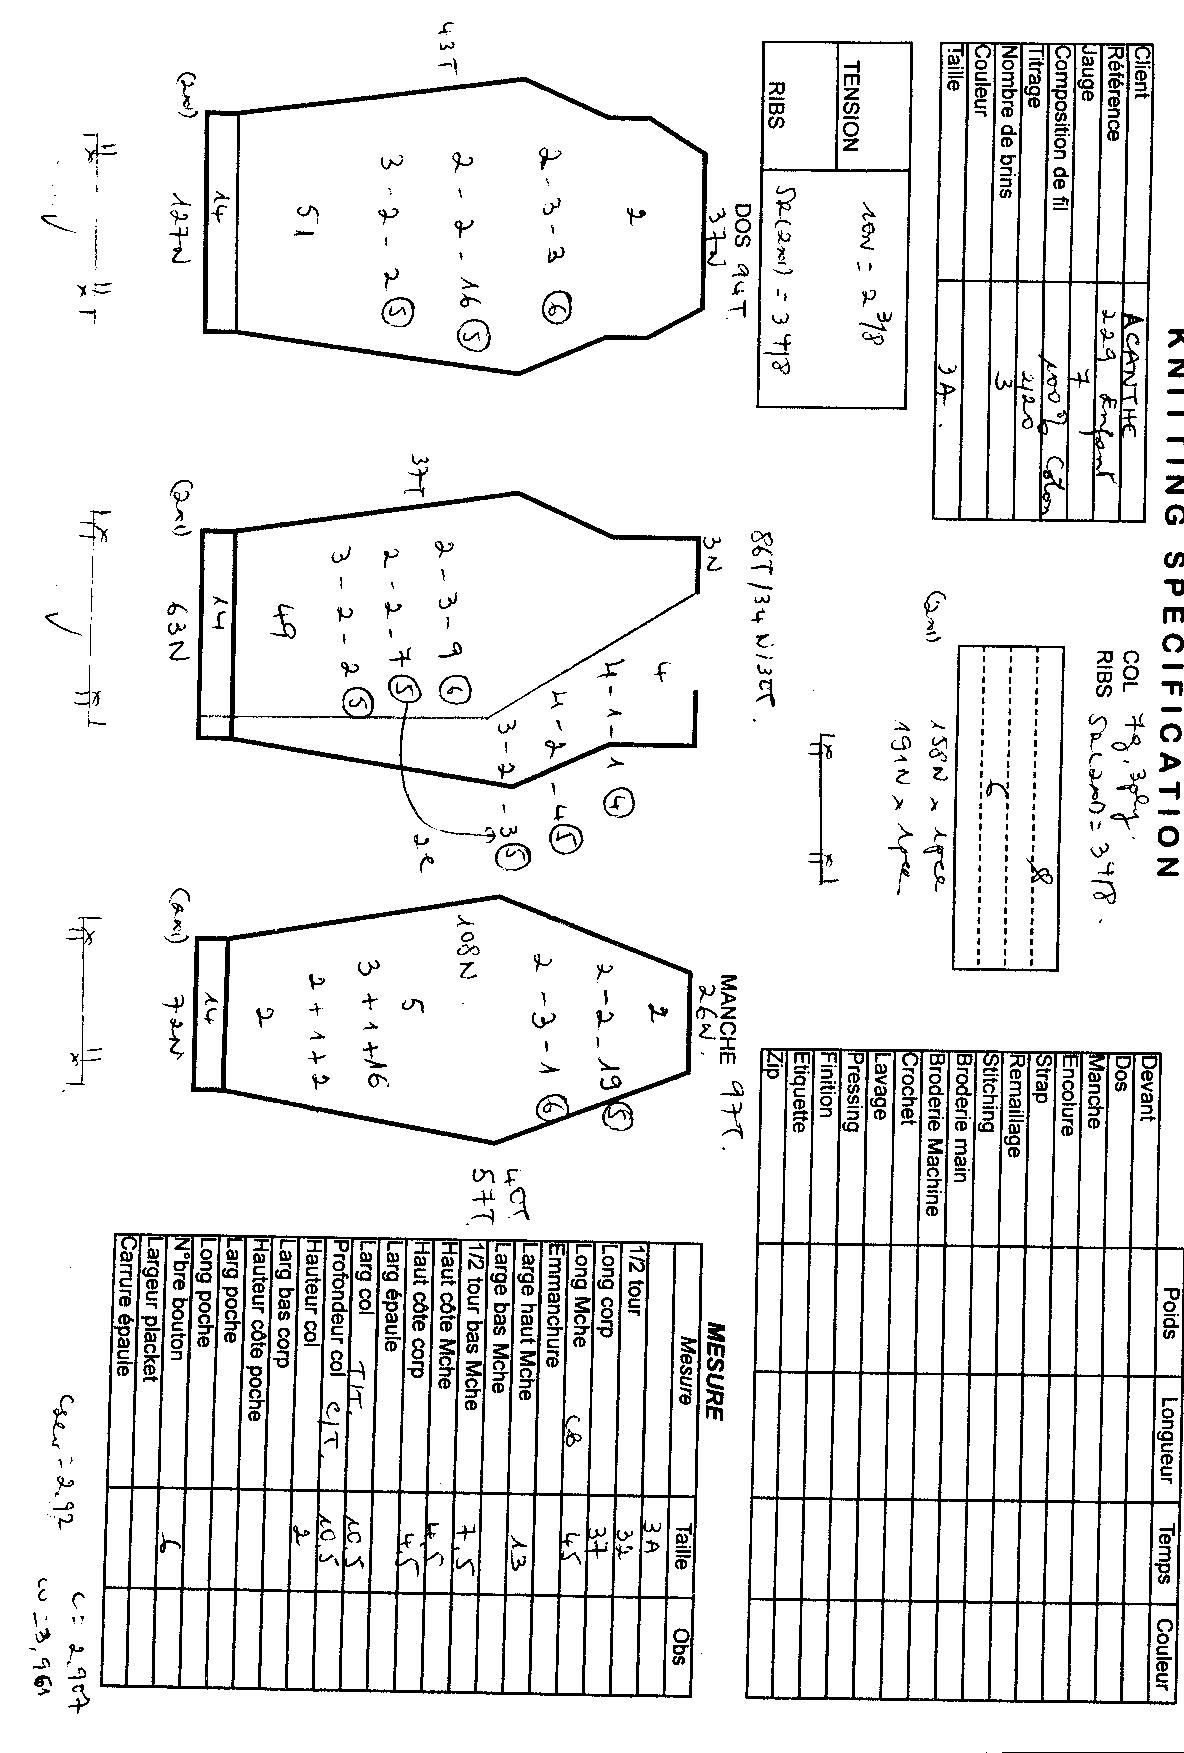 KNITTING SPECIFICATION
Client ACANTHE
Référence 229 Enfant
Jauge 7
Composition de fil 100% Coton
Titrage 2/20
Nombre de brins 3
Couleur
Taille 3A.
COL 7g, 3ply.
RIBS SR(2x1) = 3 4/8.
8
6
(2x1) 158N x 1pce
191N x 1pce
Poids Longueur Temps Couleur
Devant
Dos
Manche
Encolure
Strap
Remaillage
Stitching
Broderie main
Broderie Machine
Crochet
Lavage
Pressing
Finition
Etiquette
Zip
TENSION 10N = 2 3/8
RIBS SR(2x1) = 3 4/8
DOS 94T
37N
2
2 - 3 - 3 (6)
2 - 2 - 16 (5)
43T
3 - 2 - 2 (5)
51
14
(2x1) 127N
86T/34N/
3N
4
4 - 1 - 1 (4)
4 - 2 - 4 (5)
3 - 2 - 3 (5)
2 - 3 - 9 (6)
37T
2 - 2 - 7 (5)
2e
3 - 2 - 2 (5)
49
14
(2x1) 63N
MANCHE 97T.
26N.
2
2 - 2 - 19 (5)
2 - 3 - 1 (6)
40T
57T
108N
5
3 + 1 + 16
2 + 1 + 2
2
14
(2x1) 72N
MESURE
Mesure Taille Obs
3A
1/2 tour 32
Long corp 37
Long Mche CB 45
Emmanchure
Large haut Mche 13
Large bas Mche
1/2 tour bas Mche 7,5
Haut côte Mche 4,5
Haut côte corp 4,5
Larg épaule
Larg col T/T. 10,5
Profondeur col C/T. 10,5
Hauteur col 2
Larg bas corp
Hauteur côte poche
Larg poche
Long poche
N°bre bouton 6
Largeur placket
Carrure épaule
= 2,92
C = 2,907
W = 3,961